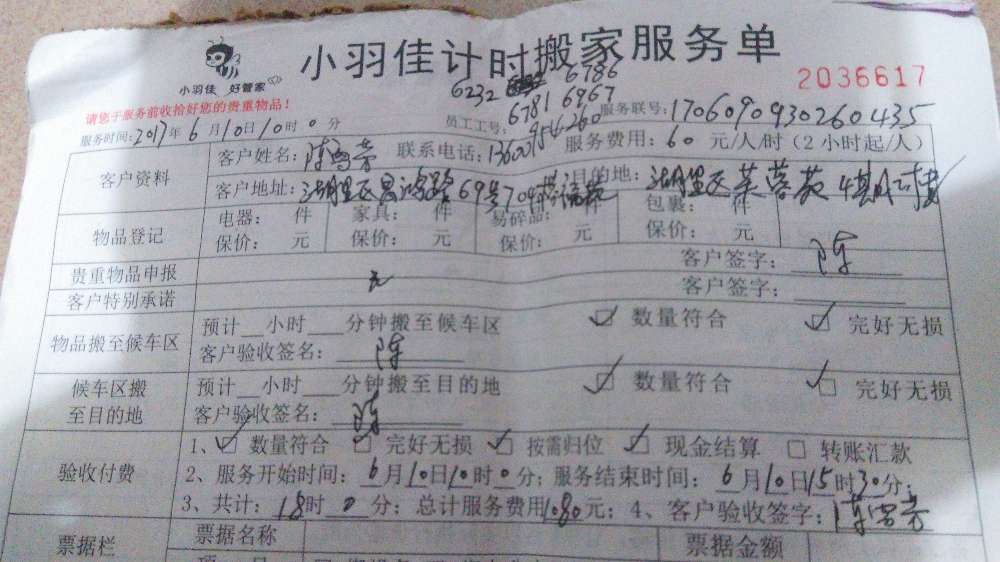 小羽佳 好管家
小羽佳计时搬家服务单
2036617
请您于服务前收拾好您的贵重物品！
6232 6786
员工工号: 6781 6967
服务联号: 1706090930260435
服务时间: 2017年6月10日10时0分
客户资料
客户姓名: 陈 芳 联系电话: 13600954260 服务费用: 60元/人/时（2小时起/人）
客户地址: 湖里区 路69号704 目的地: 湖里区芙蓉苑
物品登记
电器: 件 家具: 件 易碎品: 件 包裹: 件
保价: 元 保价: 元 保价: 元 保价: 元
贵重物品申报 无 客户签字: 陈
客户特别承诺 客户签字:
物品搬至候车区
预计__小时___分钟搬至候车区 ☑ 数量符合 ☑ 完好无损
客户验收签名: 陈
候车区搬至目的地
预计__小时___分钟搬至目的地 ☑ 数量符合 ☑ 完好无损
客户验收签名: 陈
验收付费
1、☑ 数量符合 ☑ 完好无损 ☑ 按需归位 ☑ 现金结算 □ 转账汇款
2、服务开始时间: 6月10日10时0分; 服务结束时间: 6月10日15时30分;
3、共计: 18时0分; 总计服务费用1080元; 4、客户验收签字: 陈 芳
票据栏 票据名称 票据金额